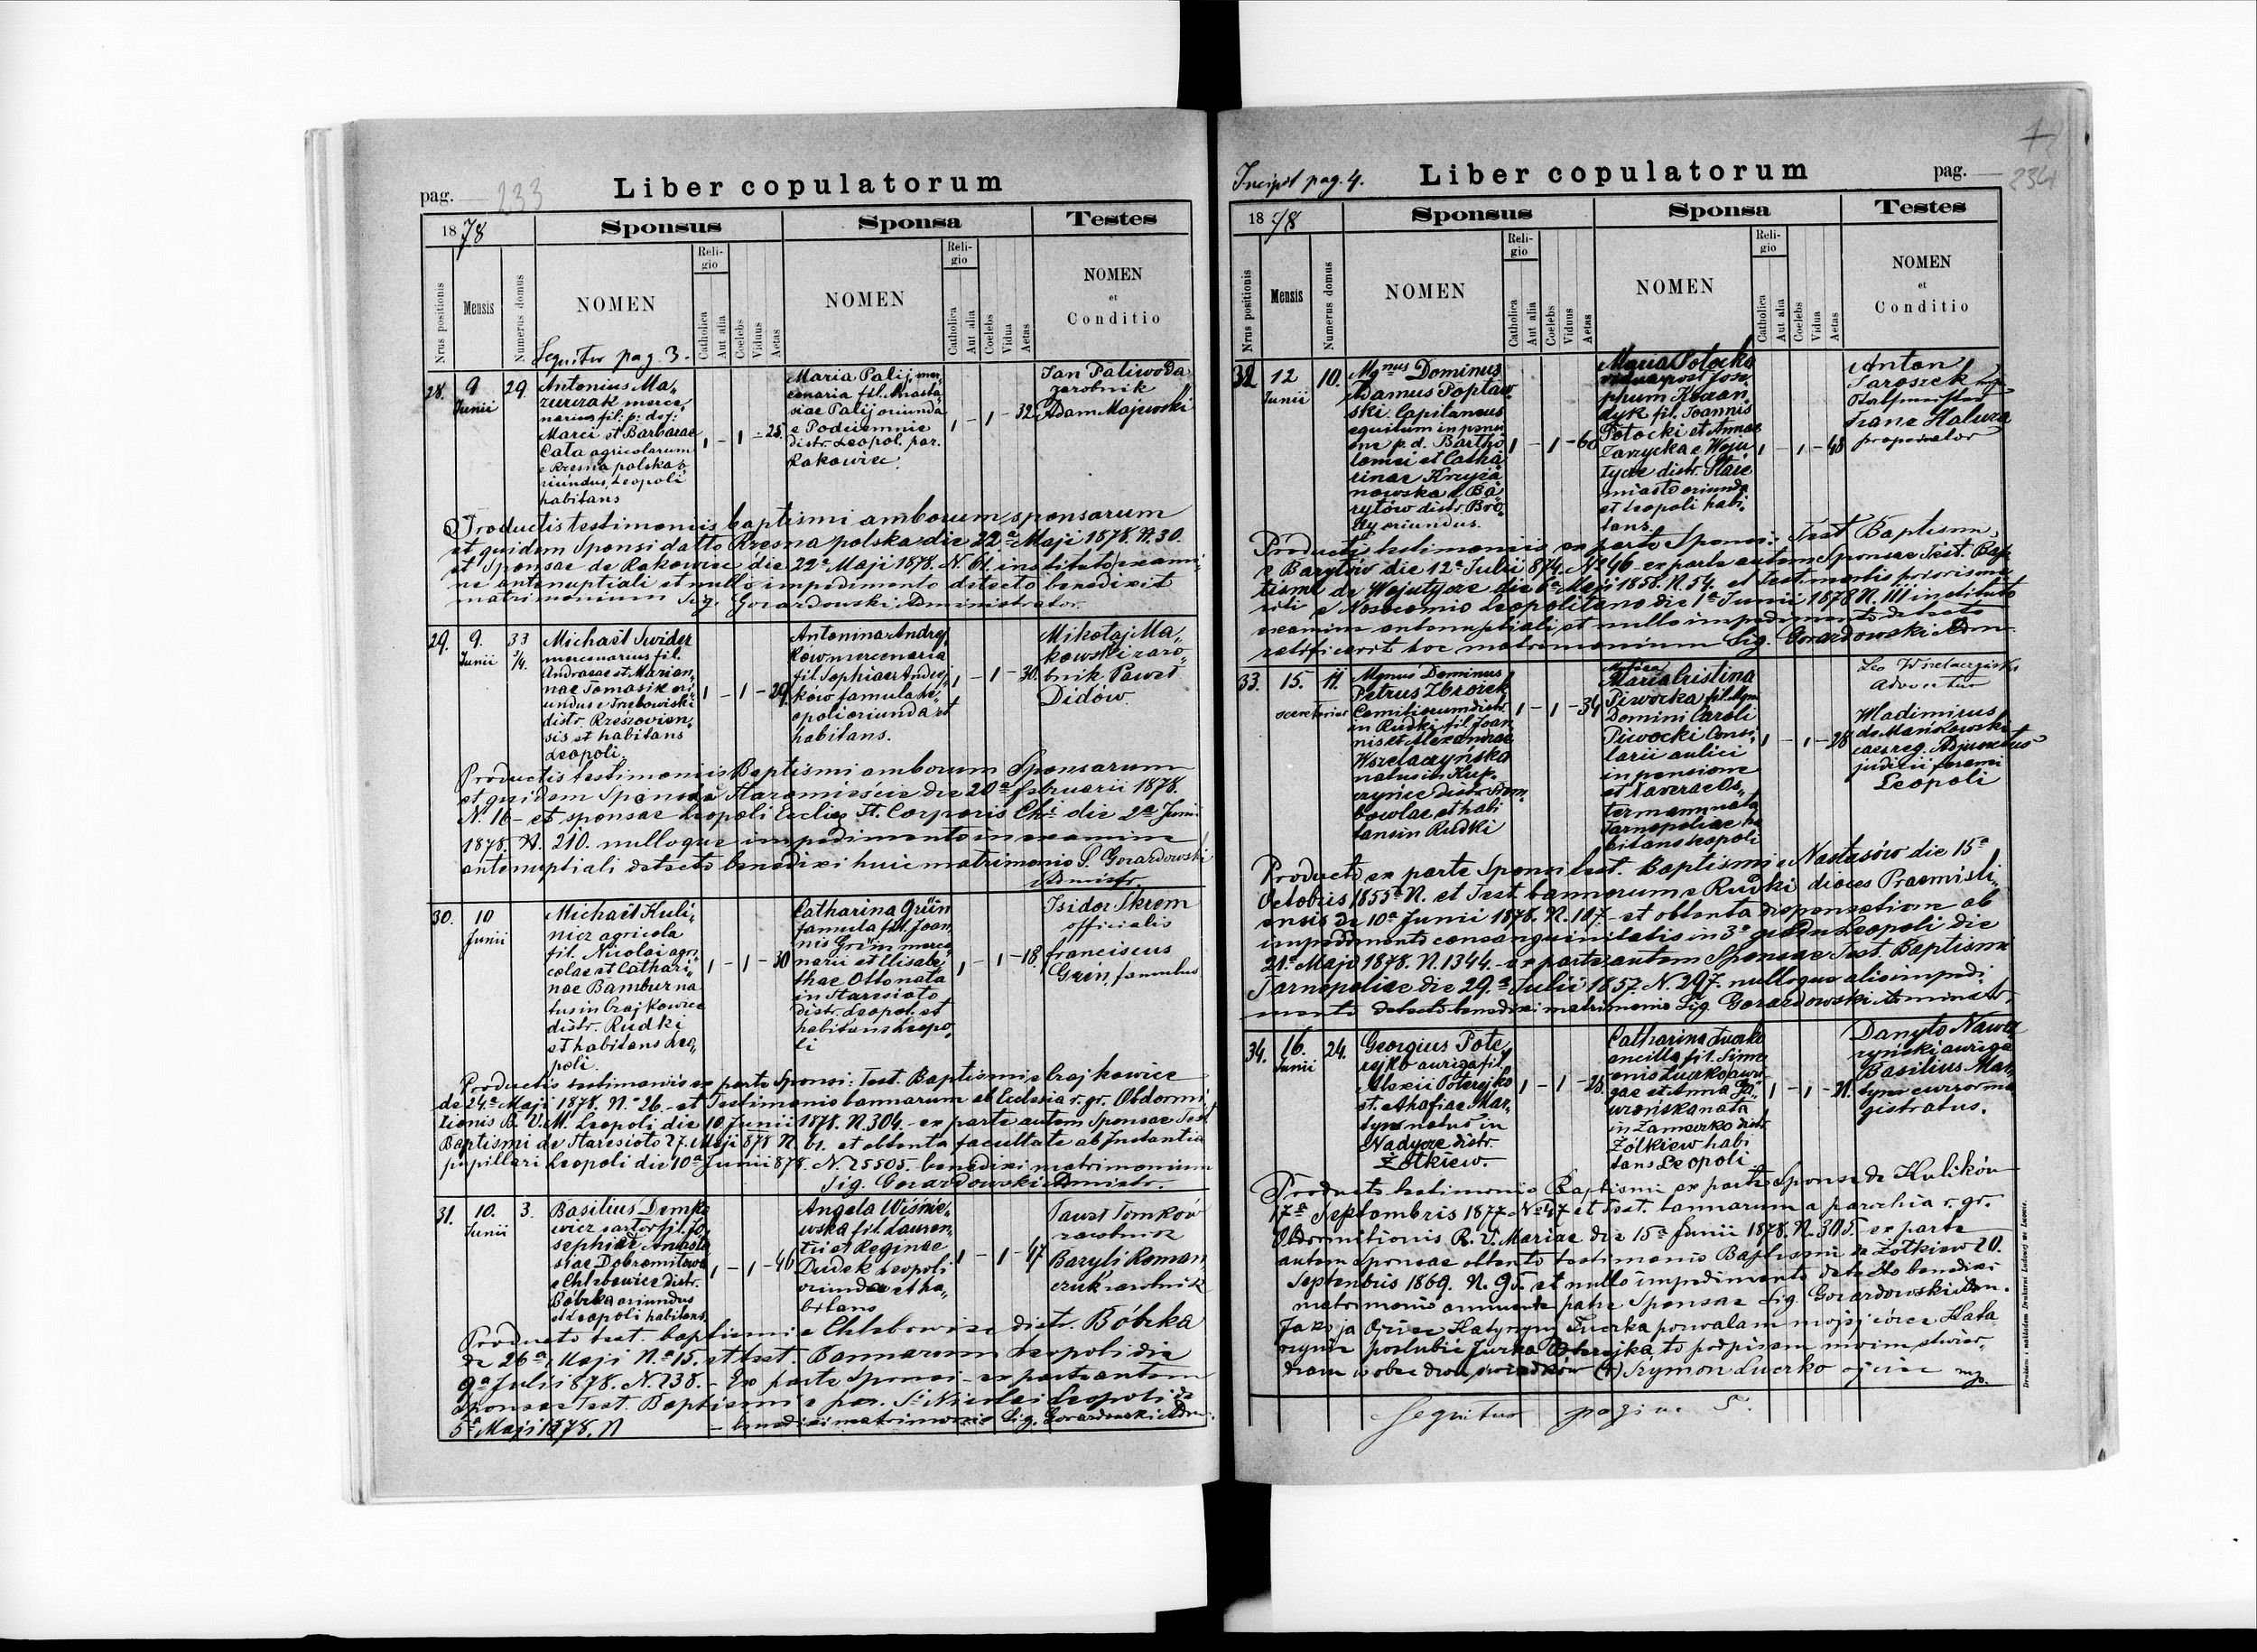 pag. 233
Liber copulatorum
1878
Sponsus
Sponsa
Testes
Nrus positionis
Mensis
Numerus domus
NOMEN
Religio
Catholica
Aut alia
Coelebs
Viduus
Aetas
NOMEN
Religio
Catholica
Aut alia
Coelebs
Vidua
Aetas
NOMEN
et
Conditio
Sequitur pag. 3.
28.
9
Junii
29.
Antonius Ma„
zurczak merce„
narius fil. p. def.
Marci et Barbarae
Cala agricolarum
e Rzesna polska o„
riundus, Leopoli
habitans
1 - 1 - 25.
Maria Palij mer„
cenaria fil. Anasta„
siae Palij oriunda
e Podciemnie
distr. Leopol. par.
Rakowiec.
1 - 1 - 32
Jan Paliwoda
zarobnik
Adam Majewski
Productis testimoniis baptismi amborum sponsarum
et quidem Sponsi datto Rzesna polska die 22a Maji 1878. N. 30.
et Sponsae de Rakowiec die 22a Maji 1878. N. 61. instituto exami„
ne antenuptiali et nullo impedimento detecto benedixit
matrimonium Sig. Gorardowski Administrator.
29.
9.
Junii
33
¾
Michaël Swider
mercenarius fil.
Andreae et Marian„
nae Tomasik ori„
undus e Trzebowiski
distr. Rzeszovien„
sis et habitans
Leopoli
1 - 1 - 29.
Antonina Andrej„
ków mercenaria
fil. Sophiae Andrej„
ków famula Le„
opoli oriunda et
habitans.
1 - 1 - 30.
Mikołaj Ma„
kowski zaro„
bnik Paweł
Didów.
Productis testimoniis Baptismi amborum Sponsarum
et quidem Sponsi de Staromieście die 20a februarii 1878.
N. 16 - et sponsae Leopoli Eccliae St. Corporis Chri die 2a Junii
1878. N. 210. nulloque impedimento in examine
antenuptiali detecto benedixi huic matrimonio S. Gorardowski
Admistr.
30.
10
Junii
Michaël Kuli„
nicz agricola
fil. Nicolai agri„
colae et Cathari„
nae Bambur na
tus in Czajkowice
distr. Rudki
et habitans Leo„
poli.
1 - 1 - 30
Catharina Grün
famula fil. Joan„
nis Grün merce„
narii et Elisabe„
thae Otto nata
in Staresioło
distr. Leopol. et
habitans Leopo„
li
1 - 1 - 18.
Isidor Skrem
officialis
franciscus
Grün, famulus
Productis testimoniis ex parte Sponsi: Test. Baptismi e Czajkowice
de 24a Maji 1878. N. 26. - et Testimonio bannorum ab Ecclesia r. gr. Obdormi„
tionis B. V. M. Leopoli die 10 Junii 1878. N. 304. - ex parte autem Sponsae Test.
Baptismi de Staresioło 27. Maji 878 N. 61. et obtenta facultate ab Instantia
pupillari Leopoli die 10a Junii 878. N. 25505. benedixi matrimonium
Sig. Gorardowski Admistr.
31.
10.
Junii
3.
Basilius Demko
wicz sartor fil. Jo„
sephi et Anasta
siae Dobromilowa
e Chlebowice distr.
Bóbrka oriundus
et Leopoli habitans
1 - 1 - 46
Angela Wiśnie„
wska fil. Lauren„
tii et Reginae
Dudek Leopoli
oriunda et ha„
bitans
1 - 1 - 47
Paweł Tomków
zarobnik
Baryli Roman„
czuk zarobnik
Producto test. baptismi e Chlebowice distr. Bóbrka
de 26a Maji N. 15. et test. Bannorum Leopoli die
9a Julii 878. N. 238. - Ex parte Sponsi - ex parte autem
Sponsae test. Baptismi e par. Sti Nicolai Leopoli de
5a Maji 1878. N - benedixi matrimonio Sig. Gorardowski Adm.
Incipit pag. 4.
Liber copulatorum
pag. 234
1878
Sponsus
Sponsa
Testes
Nrus positionis
Mensis
Numerus domus
NOMEN
Religio
Catholica
Aut alia
Coelebs
Viduus
Aetas
NOMEN
Religio
Catholica
Aut alia
Coelebs
Vidua
Aetas
NOMEN
et
Conditio
32
12
Junii
10.
Mgnus Dominus
Adamus Popław
ski Capitaneus
equitum in pensi
one p. d. Bartho
lomei et Catha„
rinae Krzyża
nowska e Ba„
rytów distr. Bro„
dy oriundus.
1 - 1 - 60
Maria Potocka
vidua post Jose
phum Kozan„
dyk fil. Joannis
Potocki et Annae
Zarzycka e Woju
tycze distr. Stare
miasto oriunda
et Leopoli habi„
tans.
1 - 1 - 48
Anton
Taroszek mp
Stallmeister
Franz Haluza
propinator
Productis testimoniis ex parte Sponsi: Test Baptism.
e Barytów die 12a Julii 874. N. 96 - ex parte autem Sponsae Test. Bap„
tismi de Wojutycze die 6a Maji 1858. N. 54. et Test. mortis prioris ma„
riti e Nosocomio Leopolitano die 1a Junii 1878 N. 111 instituto
examine antenuptiali et nullo impedimento detecto
ratificavit hoc matrimonium Sig. Gorardowski Adm.
33.
15.
11.
Mgnus Dominus
Petrus Zbrożek
secretarius Comitiorum distr.
in Rudki fil. Joan
nis et Alexandrae
Wszelaczyńska
natus in Kup„
czyńce distr. Trem„
bowlae et habi
tans in Rudki
1 - 1 - 34
Maria Cristina
Piwocka fil. Mgn
Domini Caroli
Piwocki Consi„
larii aulici
in pensione
et Xaverae Os„
termann nata
Tarnopoliae ha
bitans Leopoli
1 - 1 - 28
Leo Wszelaczyński
Advocatus
Wladimirus
de Mańkowski
caes. reg. Adjunctus
judicii
Leopoli
Producto ex parte Sponsi test. Baptismi e Nastasów die 15a
Octobris 1855 N. et Test. bannorum e Rudki dioces Praemisli„
ensis de 10a Junii 1878. N. 107 - et obtenta dispensatione ab
impedimento consanguinitatis in 3o gradu Leopoli die
21a Maji 1878. N. 1344. - ex parte autem Sponsae Test. Baptismi
Tarnopoliae die 29.a Julii 1857. N. 297. nulloque alio impedi„
mento detecto benedixi matrimonio Sig. Gorardowski Administr.
34.
16.
Junii
24.
Georgius Pote„
rejko auriga fil.
Alexii Poterejko
et Ahafiae Mar„
tyn natus in
Nadycze distr.
Żółkiew.
1 - 1 - 25
Catharina Lucrko
ancilla fil. Sime
onis Lucrko auri„
gae et Anna
nata
in Zameczko distr
Żółkiew habi
tans Leopoli
1 - 1 - 21.
Danyło Nawa
ryński auriga
Basilius Mar„
tyn cursor ma
gistratus.
Producto testimonio Baptismi ex parte Sponsi de Kulików
17a Septembris 1877 N. 47 et Test. bannorum a parochia r. gr.
Obdormitionis B. V. Mariae die 15a Junii 1878. N. 305. ex parte
autem Sponsae obtento testimonio Baptismi de Żółkiew 20.
Septembris 1869. N. 95. et nullo impedimento detecto benedixi
matrimonio annuente patre Sponsae Sig. Gorardowski Adm.
Jako ja Ojciec Katarzyny Lucrka pozwalam mojej córce Kata
rzynie poślubić Jurka Poterejka, to podpisem moim stwier„
dzam w obec dwóch świadków (+) Szymon Lucrko ojciec mp.
Sequitur pagina 5.
Drukiem i nakładem Drukarni Ludowej we Lwowie.